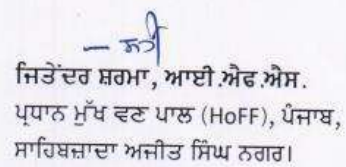 — ਸਹੀ
ਜਿਤੇਂਦਰ ਸ਼ਰਮਾ, ਆਈ.ਐਫ.ਐਸ.
ਪ੍ਰਧਾਨ ਮੁੱਖ ਵਣ ਪਾਲ (HoFF), ਪੰਜਾਬ,
ਸਾਹਿਬਜ਼ਾਦਾ ਅਜੀਤ ਸਿੰਘ ਨਗਰ।